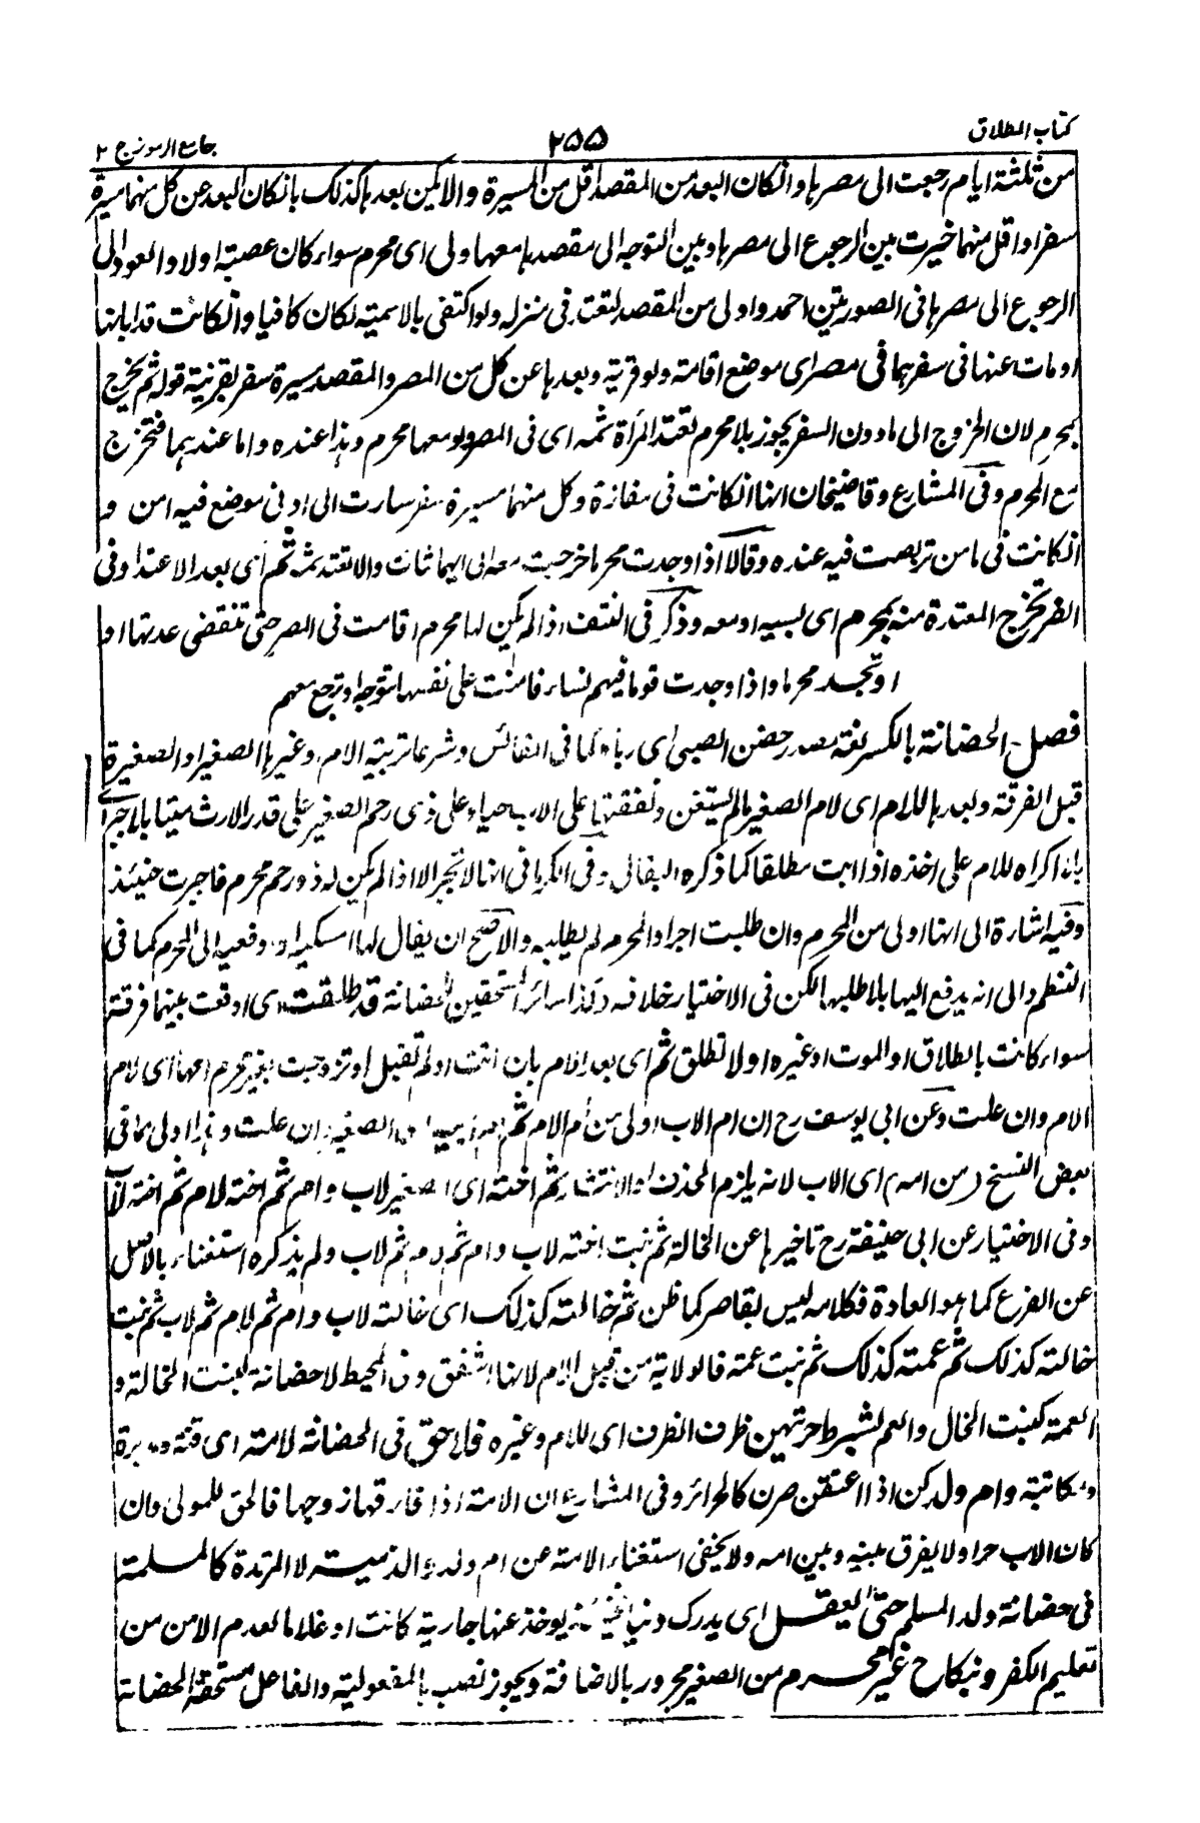 كتاب الطلاق
٢٥٥
جامع الرموز ج ٢
من ثلثة ايام رجعت الى مصرها وانكان البعد من المقصد اقل من المسيرة والا يكن بعدها كذلك بانكان البعد عن كل منهما مسيرة
سفر او اقل منهما خيرت بين الرجوع الى مصرها وبين التوجه الى مقصدها معها ولى اى محرم سواء كان عصبة اولا والعود اى
الرجوع الى مصرها فى الصورتين احمد واولى من المقصد لتعتد فى منزله ولو اكتفى بالاسمية لكان كافيا وانكانت قد ابانها
او مات عنها فى سفرهما فى مصر اى موضع اقامة ولو قرية وبعدها عن كل من المصر والمقصد مسيرة سفر بقرينة قوله ثم يخرج
بمحرم لان الخروج الى ما دون السفر يجوز بلا محرم تعتد المرأة ثمه اى فى المصر ولو معها محرم وهذا عنده واما عندهما فتخرج
مع المحرم وفى المشارع وقاضيخان انها انكانت فى مفازة وكل منهما مسيرة سفر سارت الى ادنى موضع فيه امن و
انكانت فى مامن تربصت فيه عنده وقالا اذا وجدت محرما خرجت معه الى ايهما شاءت والا تعتد ثمه ثم اى بعد الاعتداد فى
المصر تخرج المعتدة منه بمحرم اى بسببه او معه وذكر فى النتف اذا لم يكن لها محرم اقامت فى المصر حتى تنقضى عدتها او
او تجد محرما واذا وجدت قوما فيهم نساء فامنت على نفسها تتوجه او ترجع معهم
فصل الحضانة بالكسر لغة مصدر حضن الصبى اى رباه كما فى النفائس وشرعا تربية الام وغيرها الصغير او الصغيرة
قبل الفرقة وبعدها للام اى لام الصغير مالم يستغن ونفقتها على الاب حياء وعلى ذى رحم الصغير على قدر الارث ميتا بلا جبر اى
بلا اكراه للام على اخذه اذا ابت مطلقا كما ذكره البقالى وفى الكرمانى انها لا تجبر الا اذا لم يكن له ذو رحم محرم فاجبرت حينئذ
وفيه اشارة الى انها اولى من المحرم وان طلبت اجرا والمحرم لم يطلبه والاصح ان يقال لها امسكيه او دفعيه الى المحرم كما فى
النظم والى انه يدفع اليها بلا طلبها لكن فى الاختيار خلافه وكذا سائر المستحقين للحضانة قد طلقت اى اوقعت بينهما فرقة
سواء كانت بالطلاق او الموت او غيره او لا تطلق ثم اى بعد الام بان ماتت او لم تقبل او تزوجت بغير محرم امها اى لام
الام وان علت وعن ابى يوسف رح ان ام الاب اولى من ام الام ثم ام ابيه الصغير وان علت وهذا اولى مما فى
بعض النسخ (من امه) اى الاب لانه يلزم الحذف او الانتشار ثم اخته اى الصغير لاب وام ثم اخته لام ثم اخته لاب
وفى الاختيار عن ابى حنيفة رح تاخيرها عن الخالة ثم بنت اخته لاب وام ثم لام ثم لاب ولم يذكره استغناء بالاصل
عن الفرع كما هو العادة فكلامه ليس بقاصر كما ظن ثم خالته كذلك اى خالته لاب وام ثم لام ثم لاب ثم بنت
خالته كذلك ثم عمته كذلك ثم بنت عمته فالولاية من قبل الام لانها اشفق وفى المحيط لا حضانة لبنت الخالة و
العمة كبنت الخال والعم بشرط حريتهن ظرف الظرف اى للام وغيره فلا حق فى الحضانة لامة اى قنة ومدبرة
ومكاتبة وام ولد لكن اذا اعتقن صرن كالحرائر وفى المشارع ان الامة اذا فارقها زوجها فالحق للمولى وان
كان الاب حرا ولا يفرق بينه وبين امه ولا يخفى استغناء الامة عن ام ولد والذمية لا المرتدة كالمسلمة
فى حضانة ولد المسلم حتى يعقل اى يدرك دينا فحينئذ يوخذ عنها جارية كانت او غلاما لعدم الامن من
تعليم الكفر ونكاح غير محرم من الصغير مجرور بالاضافة ويجوز نصب بالمفعولية والفاعل مستحقة الحضانة